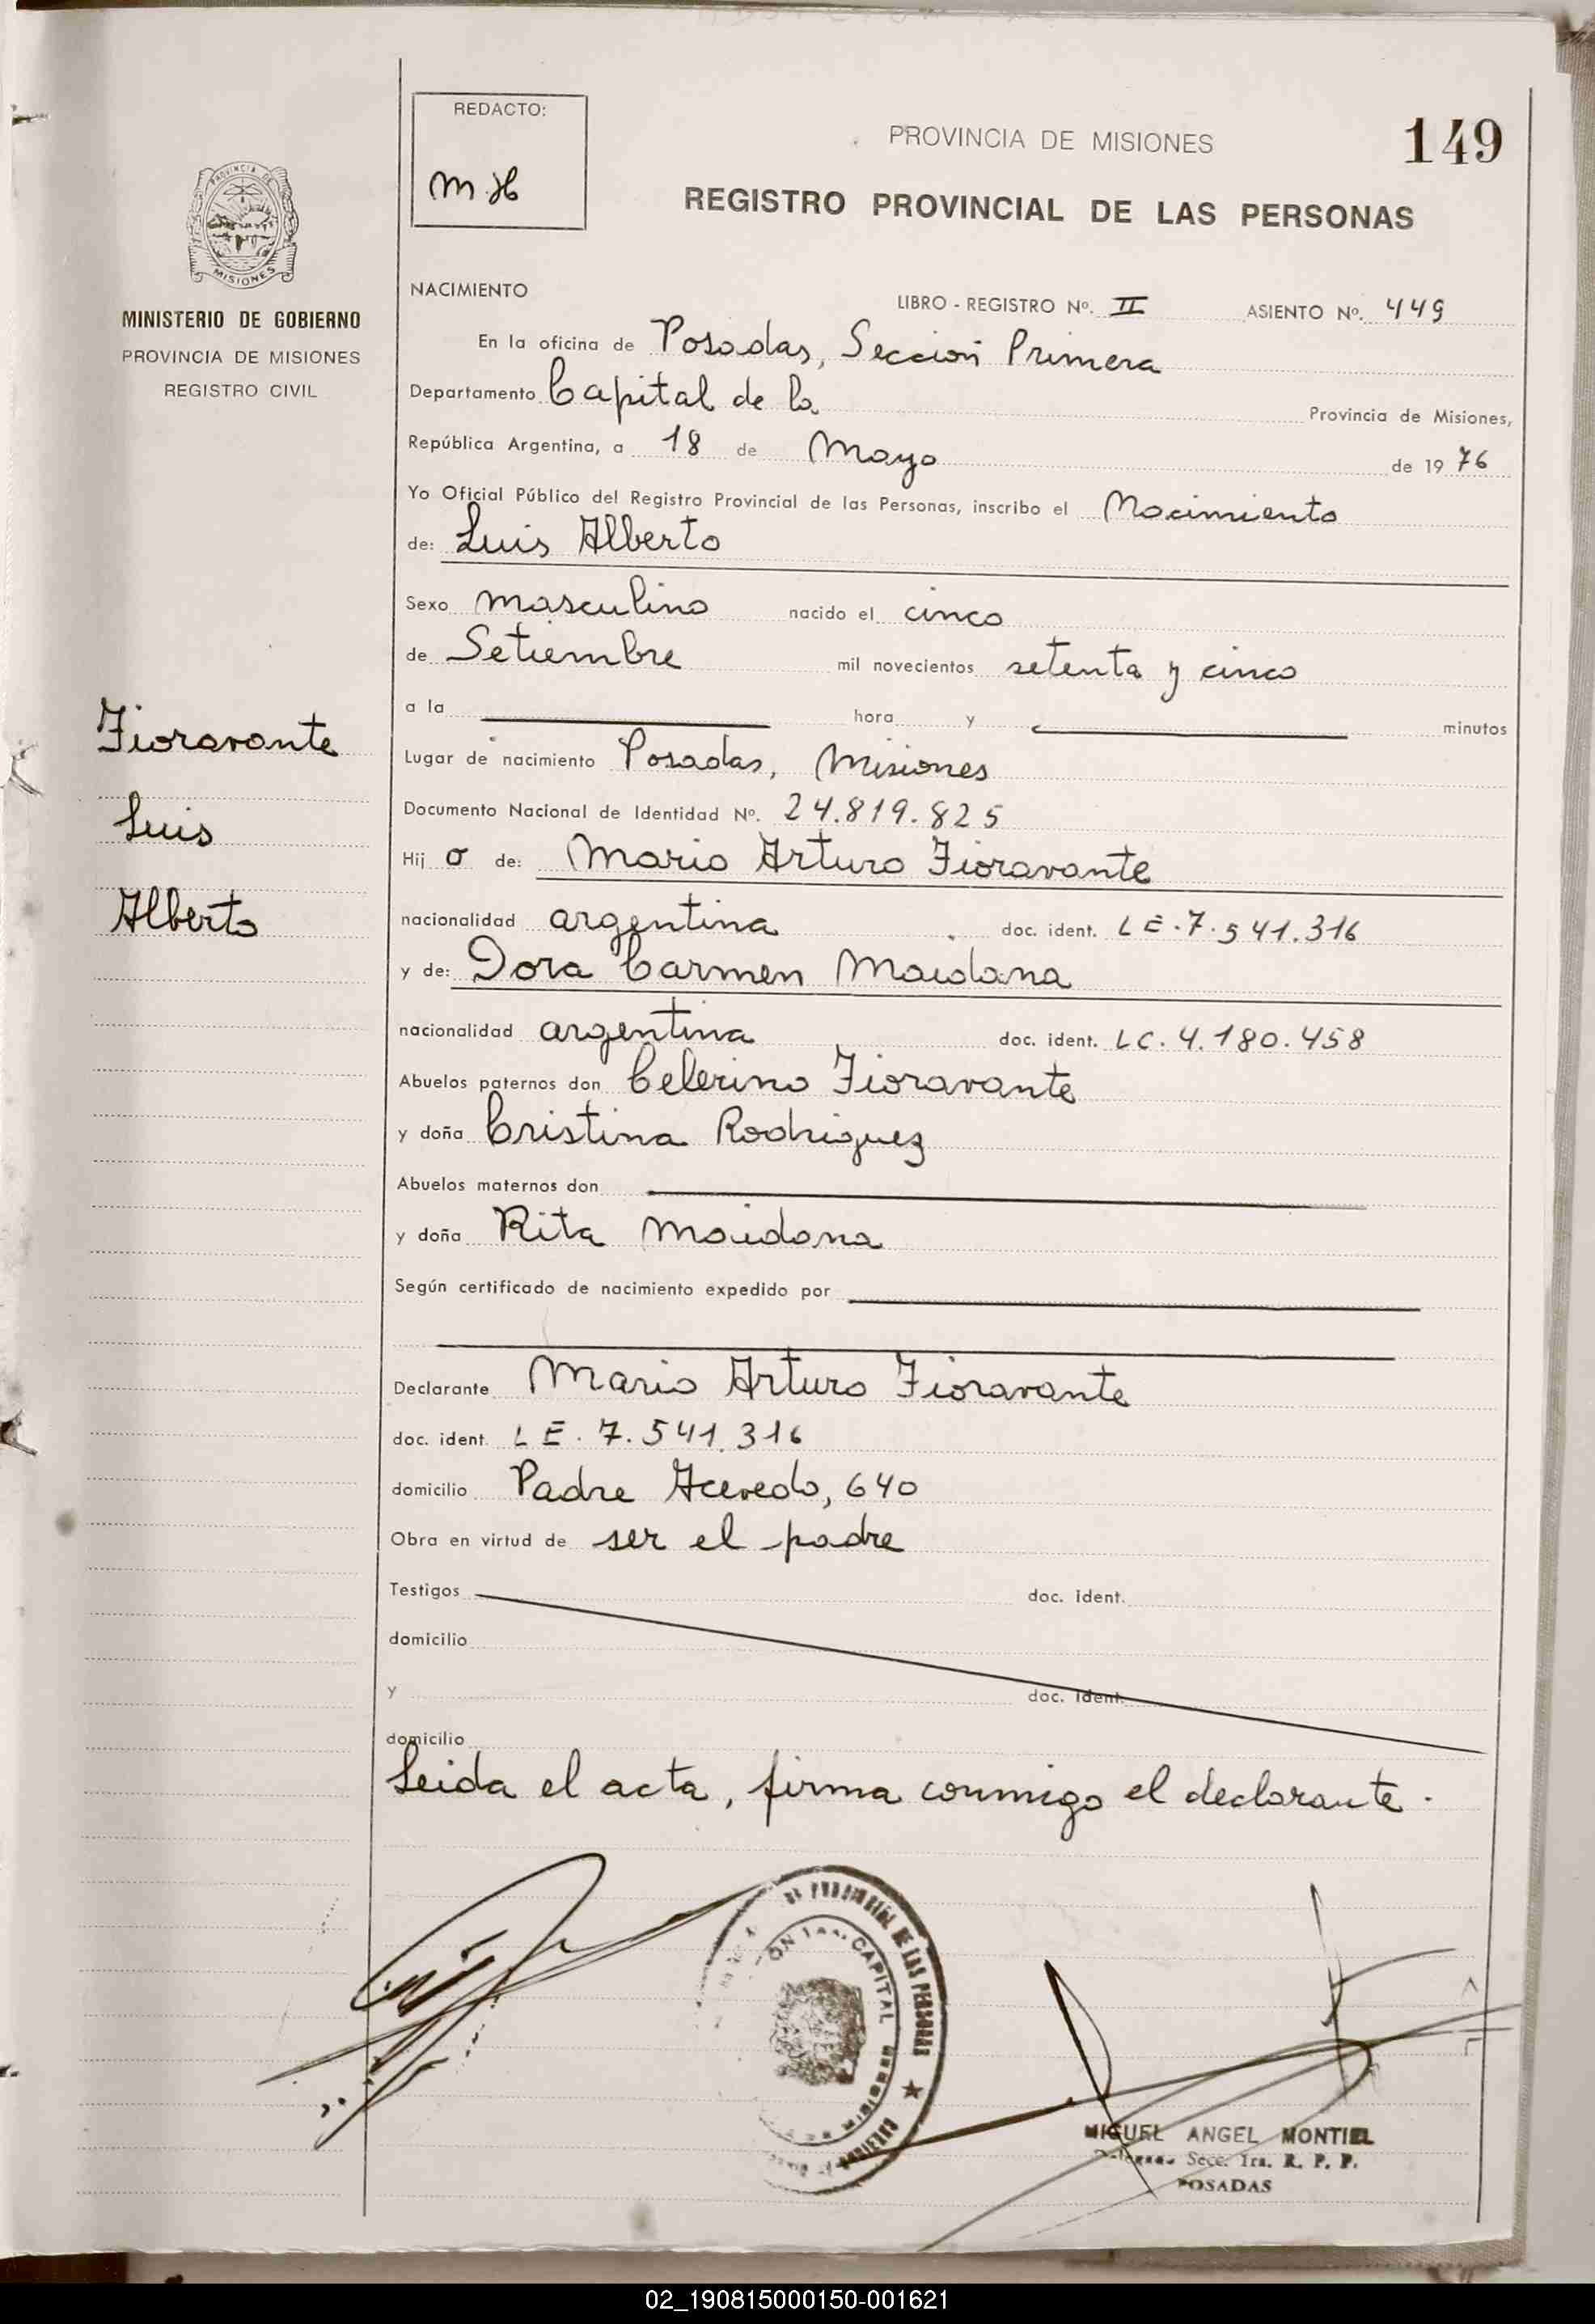 REDACTO:
M.H
PROVINCIA DE MISIONES
149
REGISTRO PROVINCIAL DE LAS PERSONAS
PROVINCIA DE
MISIONES
MINISTERIO DE GOBIERNO
PROVINCIA DE MISIONES
REGISTRO CIVIL
NACIMIENTO
LIBRO - REGISTRO Nº. II ASIENTO Nº. 449
En la oficina de Posadas, Sección Primera
Departamento Capital de la Provincia de Misiones,
República Argentina, a 18 de Mayo de 19 76
Yo Oficial Público del Registro Provincial de las Personas, inscribo el Nacimiento
de: Luis Alberto
Sexo masculino nacido el cinco
de Setiembre mil novecientos setenta y cinco
a la hora y minutos
Fioravante
Luis
Alberto
Lugar de nacimiento Posadas, Misiones
Documento Nacional de Identidad Nº. 24.819.825
Hij o de: Mario Arturo Fioravante
nacionalidad argentina doc. ident. LE.7.541.316
y de: Dora Carmen Maidana
nacionalidad argentina doc. ident. LC.4.180.458
Abuelos paternos don Celerino Fioravante
y doña Cristina Rodriguez
Abuelos maternos don
y doña Rita Maidana
Según certificado de nacimiento expedido por
Declarante Mario Arturo Fioravante
doc. ident. LE.7.541.316
domicilio Padre Acevedo, 640
Obra en virtud de ser el padre
Testigos doc. ident.
domicilio
y doc. ident.
domicilio
Leida el acta, firma conmigo el declarante.
PROVINCIAL DE LAS PERSONAS
CAPITAL
MIGUEL ANGEL MONTIEL
Secc. 1ra. R. P. P.
POSADAS
02_190815000150-001621